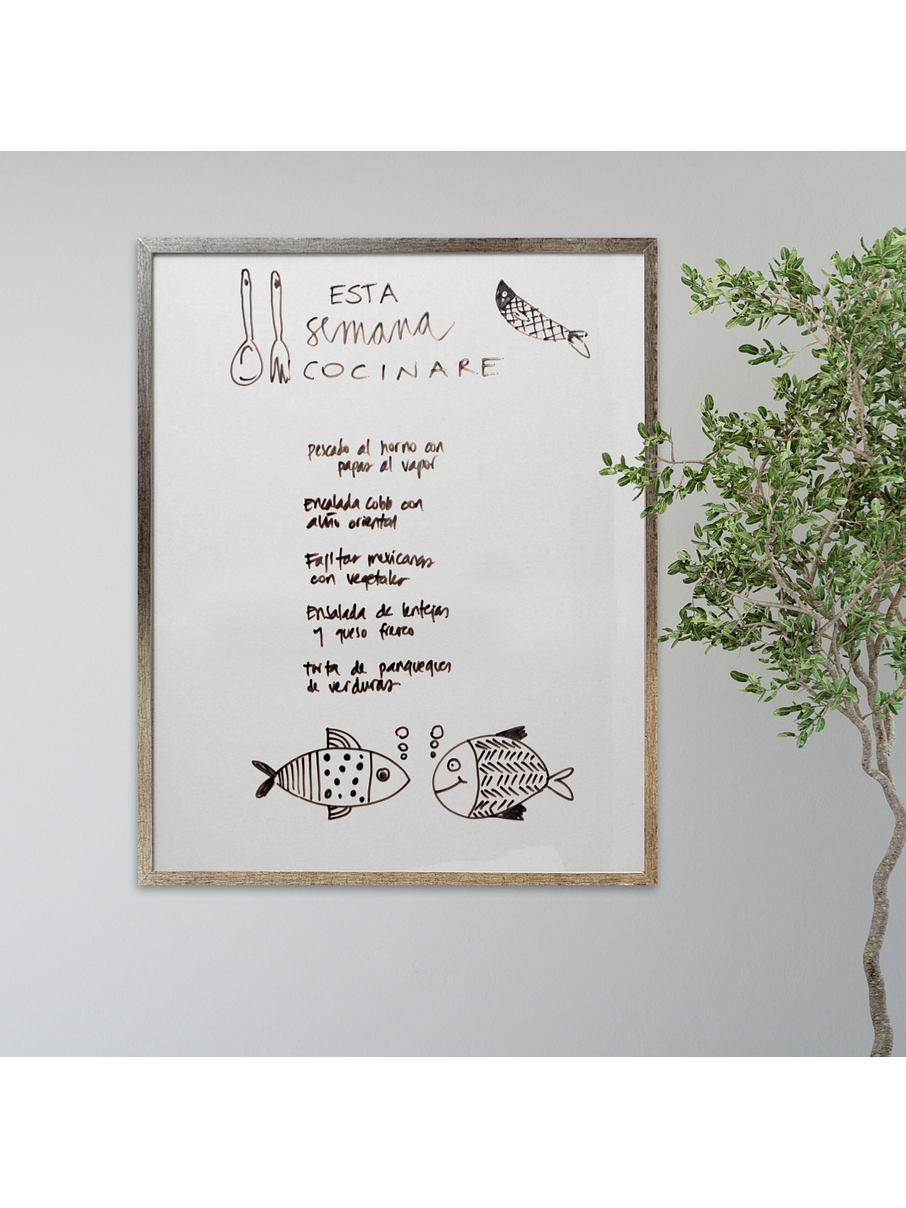 ESTA
semana
COCINARE
pescado al horno con
papas al vapor
Ensalada cobb con
aliño oriental
Fajitas mexicanas
con vegetales
Ensalada de lentejas
y queso fresco
torta de panqueques
de verduras